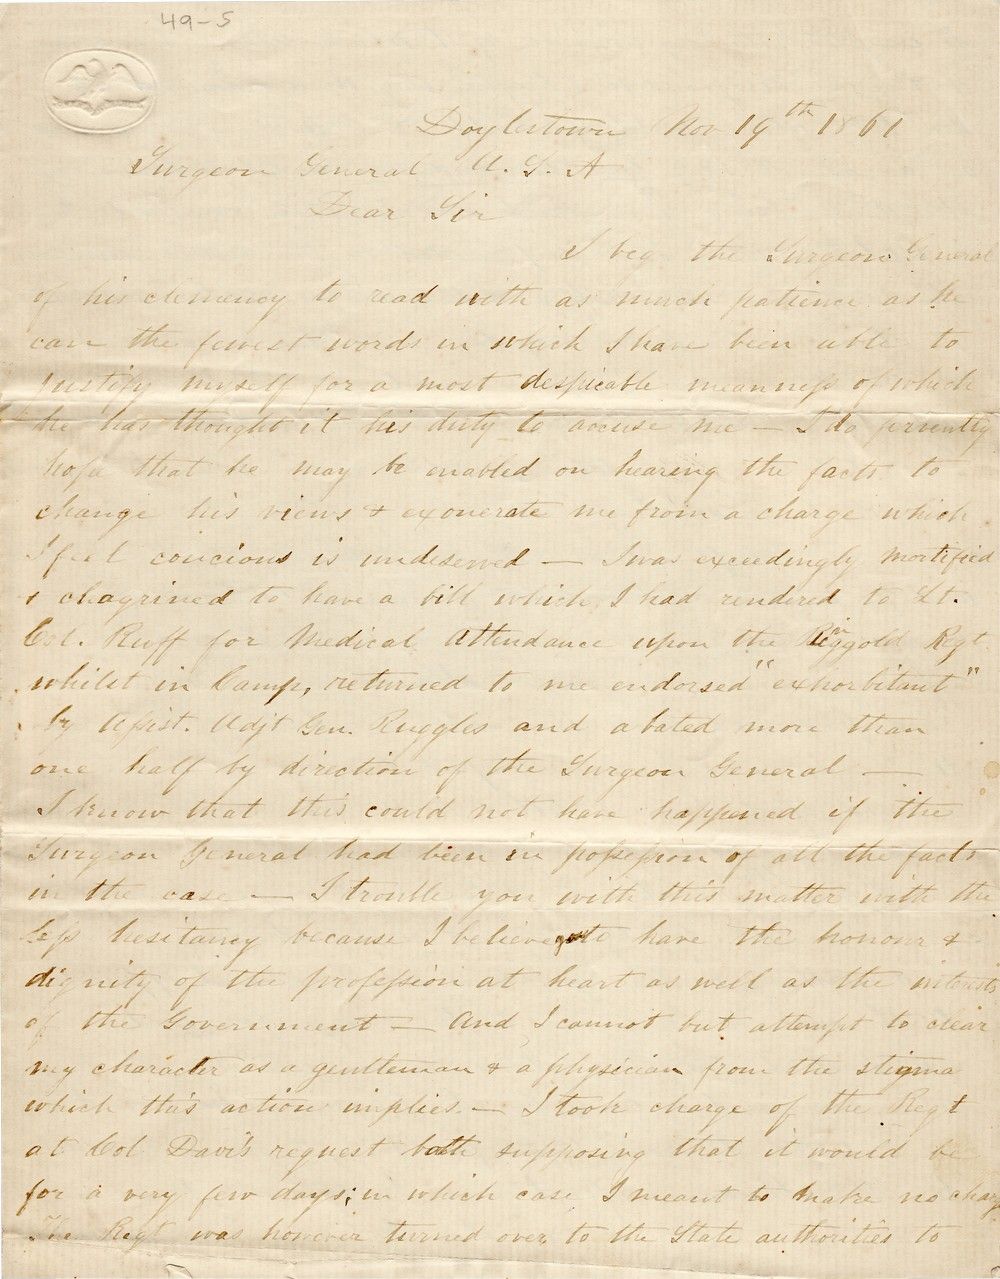 49-5
Doylestown Nov 19th 1861
Surgeon General U.S.A
Dear Sir
I beg the Surgeon General
of his clemency to read with as much patience as he
can the fewest words in which I have been able to
justify myself for a most despicable meanness of which
he has thought it his duty to accuse me — I do fervently
hope that he may be enabled on hearing the facts to
change his views & exonerate me from a charge which
I feel concious is undeserved — I was exceedingly mortified
& chagrined to have a bill which I had rendered to Lt.
Col. Ruff for Medical Attendance upon the Ringgold Regt
whilst in Camp, returned to me endorsed "exhorbitant"
by Assist. Adjt Gen. Ruggles and abated more than
one half by direction of the Surgeon General —
I know that this could not have happened if the
Surgeon General had been in possession of all the facts
in the case — I trouble you with this matter with the
less hesitancy because I believe to have the honour &
dignity of the profession at heart as well as the interests
of the Government — And I cannot but attempt to clear
my character as a gentleman & a physician from the stigma
which this action implies — I took charge of the Regt
at Col Davis request both supposing that it would be
for a very few days; in which case I meant to make no charg
The Regt was however turned over to the State authorities to